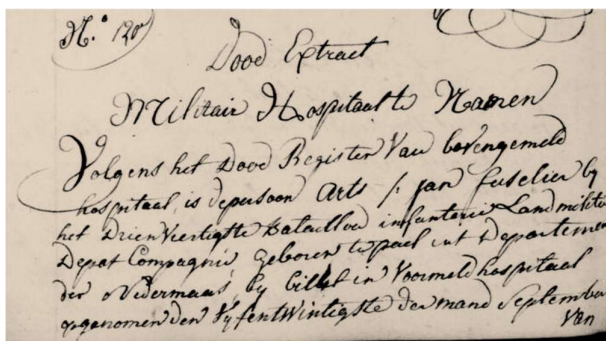 N.º 120
Dood Extract
Militair Hospitaal te Namen
Volgens het Dood Register Van bovengemeld
hospitaal, is depersoon Arts /: jan fuselier by
het Drienveertigste Bataillon infanterie Landmilitie
Depat Compagnie, geboren te pael int Departement
der Nedermaas, by billet in Voormeld hospitaal
opgenomen den Vyfentwintigste der mand September
Van